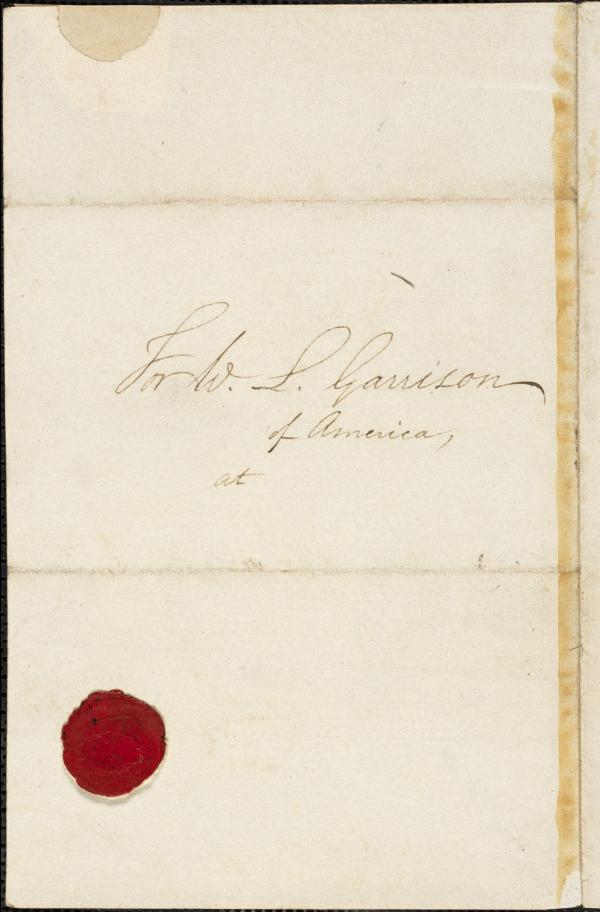 For W. L. Garrison
of America,
at